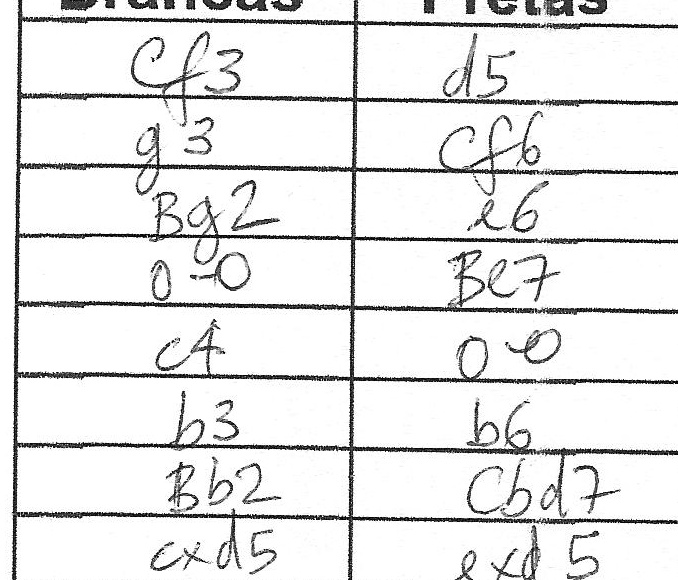 Brancas Pretas
Cf3 d5
g3 Cf6
Bg2 e6
0-0 Be7
c4 0-0
b3 b6
Bb2 Cbd7
cxd5 exd5